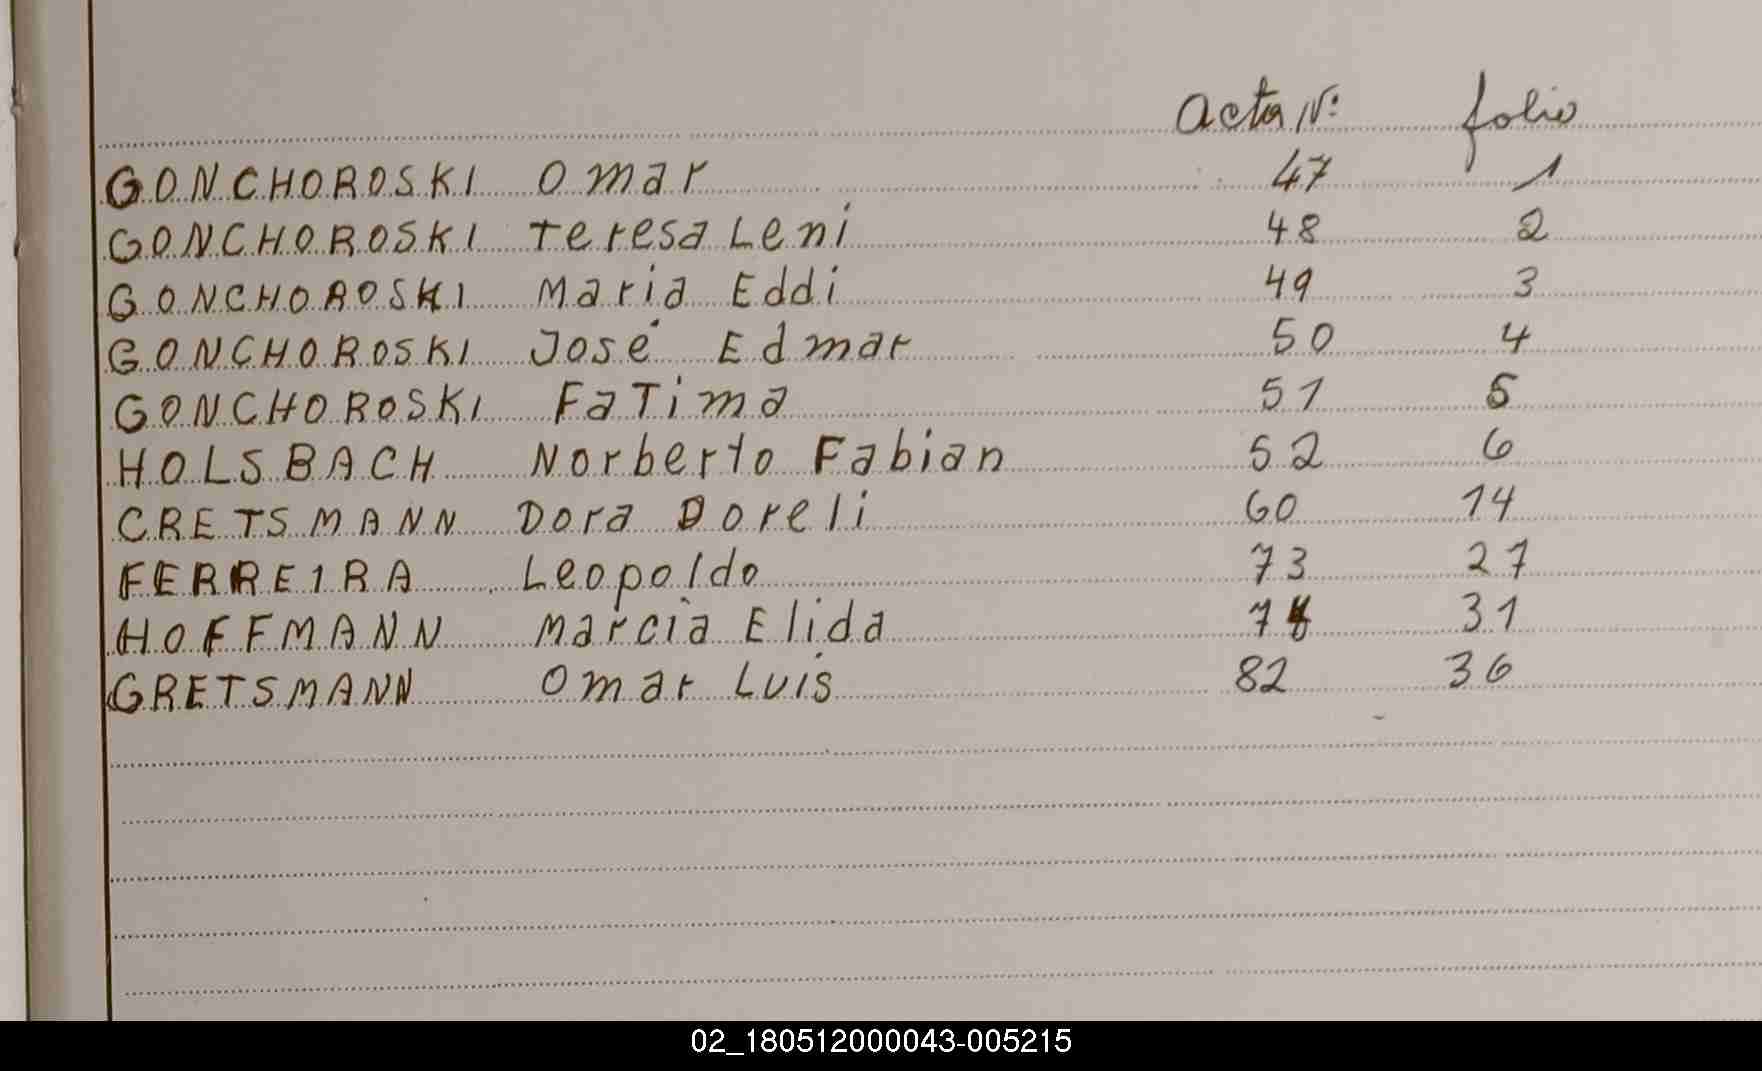 Acta Nº folio
GONCHOROSKI Omar 47 1
GONCHOROSKI Teresa Leni 48 2
GONCHOROSKI Maria Eddi 49 3
GONCHOROSKI José Edmar 50 4
GONCHOROSKI FaTima 51 5
HOLSBACH Norberto Fabian 52 6
CRETSMANN Dora Doreli 60 14
FERREIRA Leopoldo 73 27
HOFFMANN Marcia Elida 31
GRETSMANN Omar Luis 82 36
02_180512000043-005215